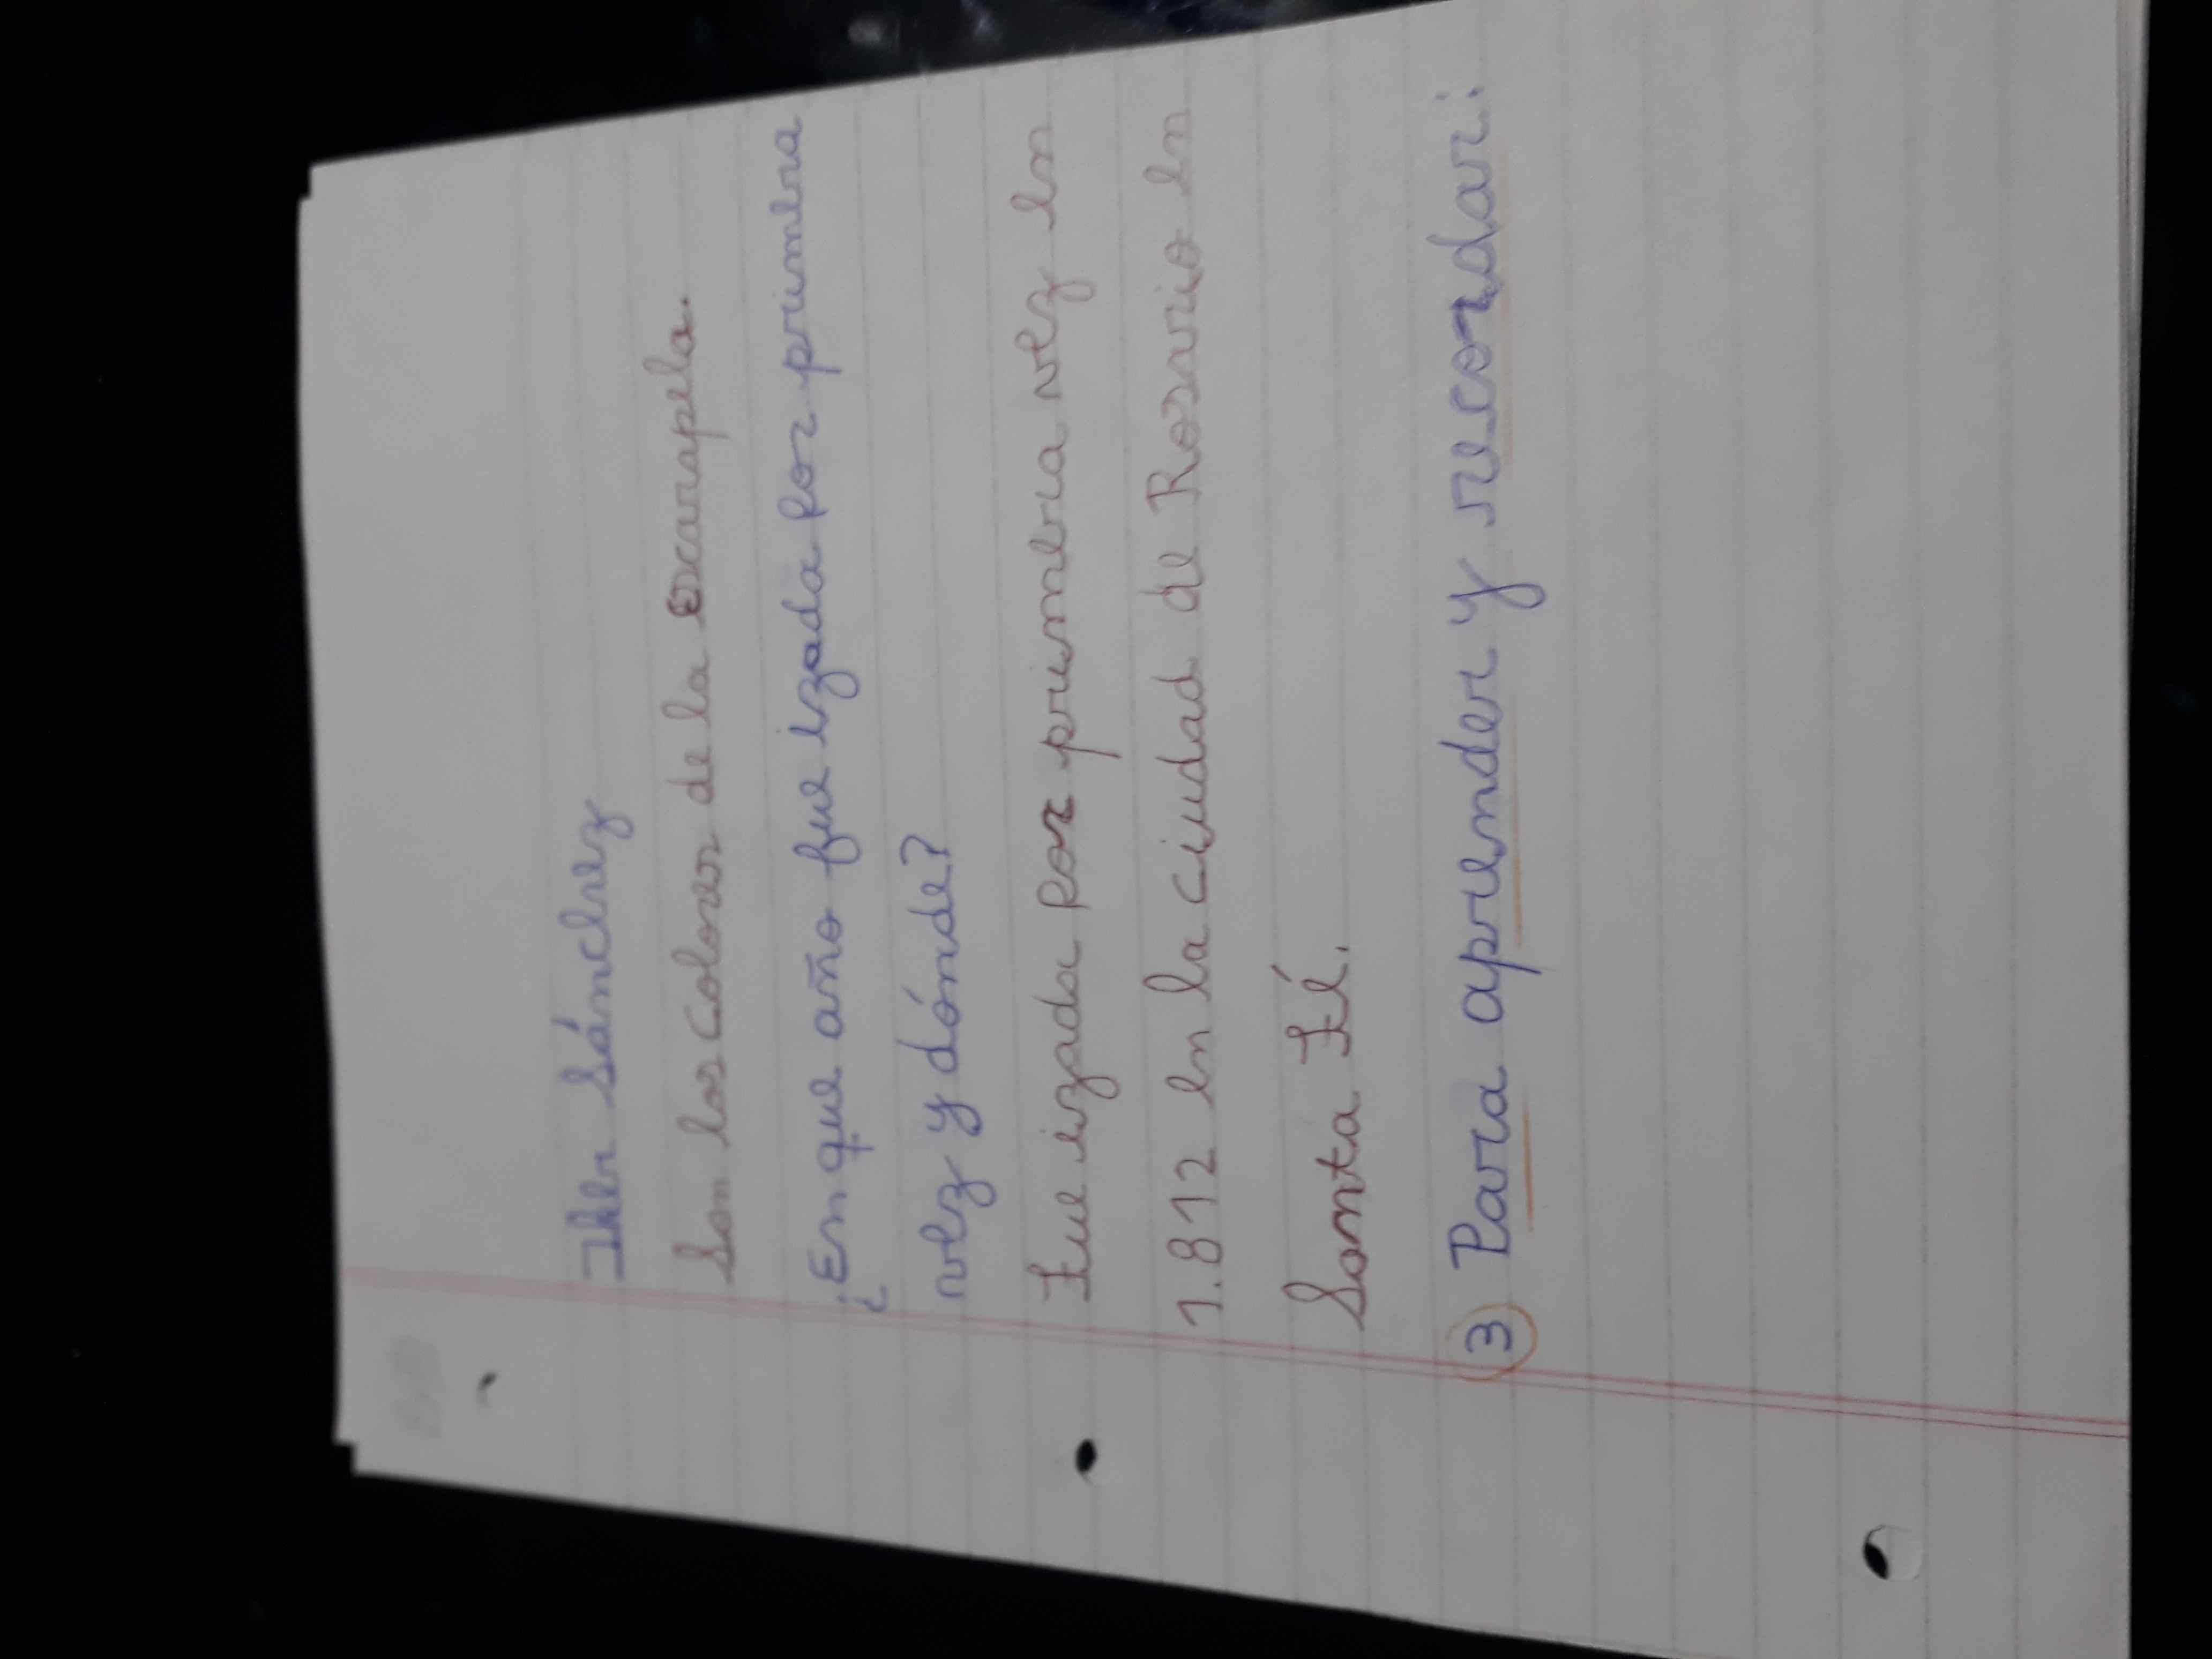 Sánchez
Son los colores de la escarapela.
¿En que año fue izada por primera
vez y dónde?
Fue izada por primera vez en
1.812 en la ciudad de Rosario en
Santa Fé.
3 Para aprender y recordar: